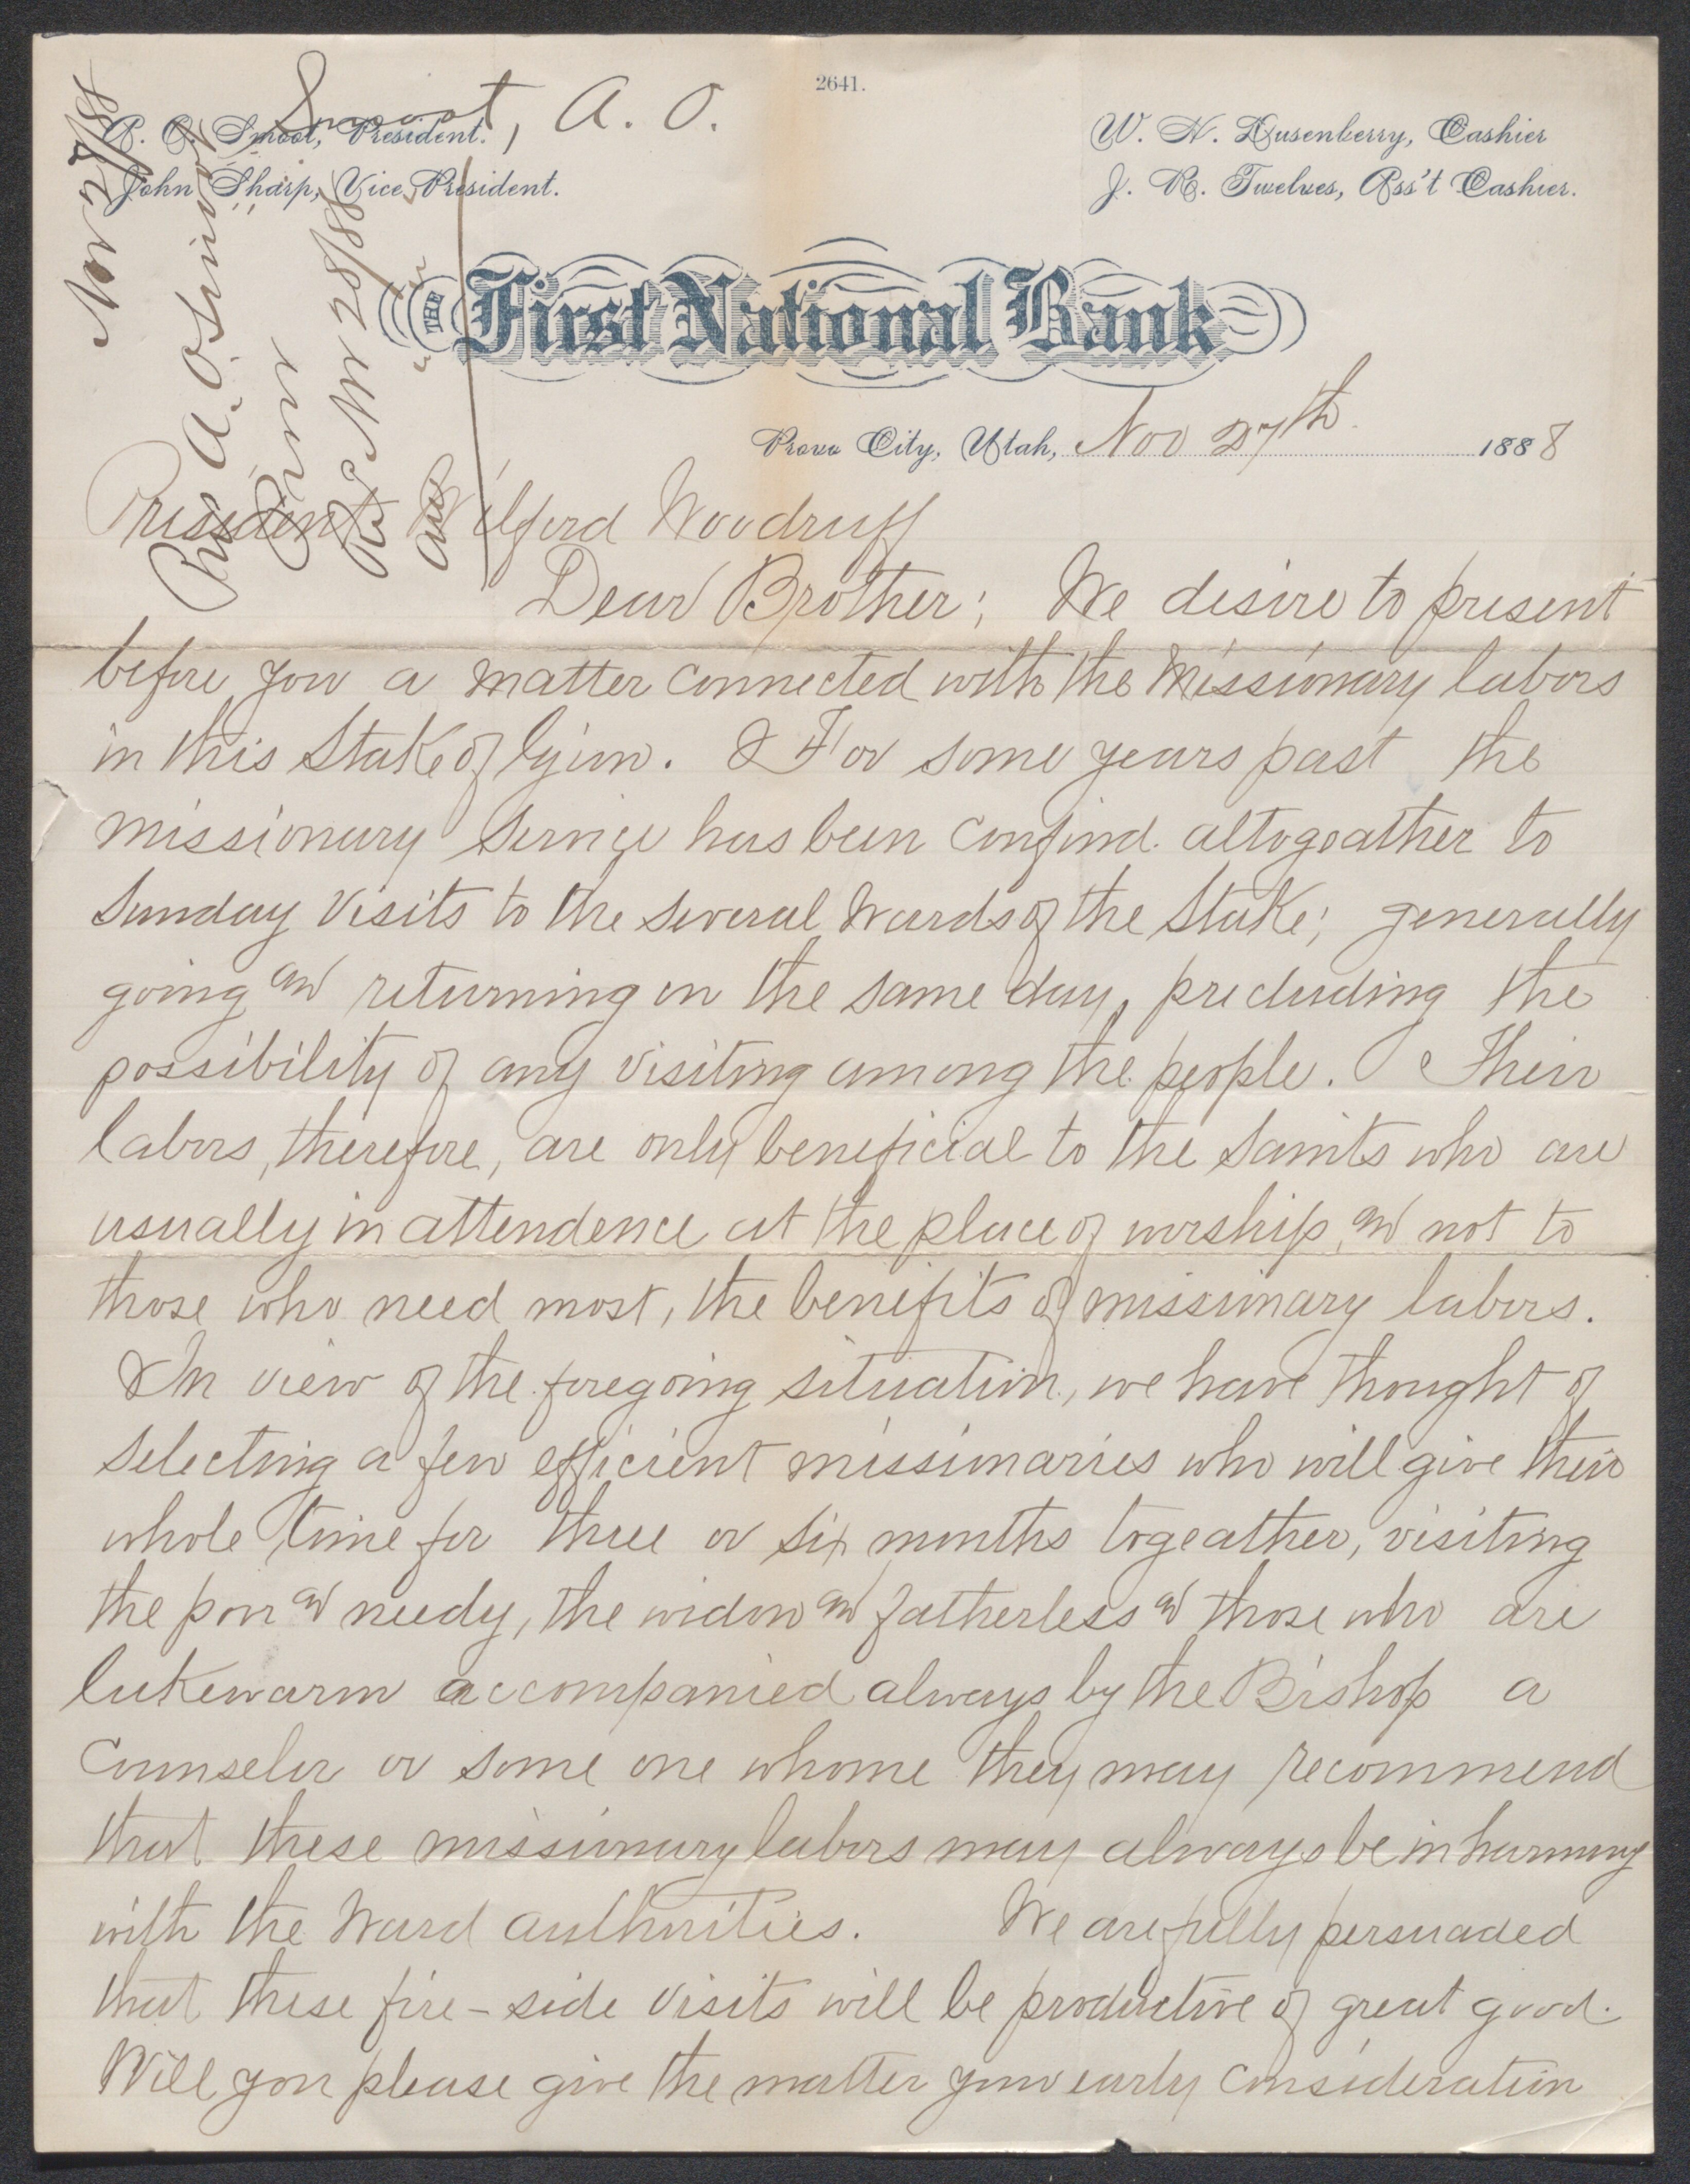 2641.
Smoot, A. O.
A. O. Smoot, President.
John Sharp, Vice President.
W. H. Dusenberry, Cashier
J. R. Twelves, Ass't Cashier.
Nov 27/88
Pres A. O. Smoot
Provo
Rec Nov 28/88
THE First National Bank
Provo City, Utah, Nov 27th 1888
President Wilford Woodruff
Dear Brother; We desire to present
before you a matter connected with the Missionary labors
in this Stake of Zion. For some years past the
missionary Service has been confind altogeather to
Sunday Visits to the several Wards of the Stake; generally
going and returning on the same day, precluding the
possibility of any visiting among the people. Their
labors, therefore, are only beneficial to the Saints who are
usually in attendence at the place of worship, and not to
those who need most, the benefits of missionary labors.
In view of the foregoing situation, we have thought of
selecting a few efficient missionaries who will give their
whole time for three or six months togeather, visiting
the poor and needy, the widow and fatherless and those who are
lukewarm accompanied always by the Bishop a
Counselor or some one whome they may recommend
that these missionary labors may always be in harmony
with the Ward authorities. We are fully persuaded
that these fire-side visits will be productive of great good.
Will you please give the matter your early consideration